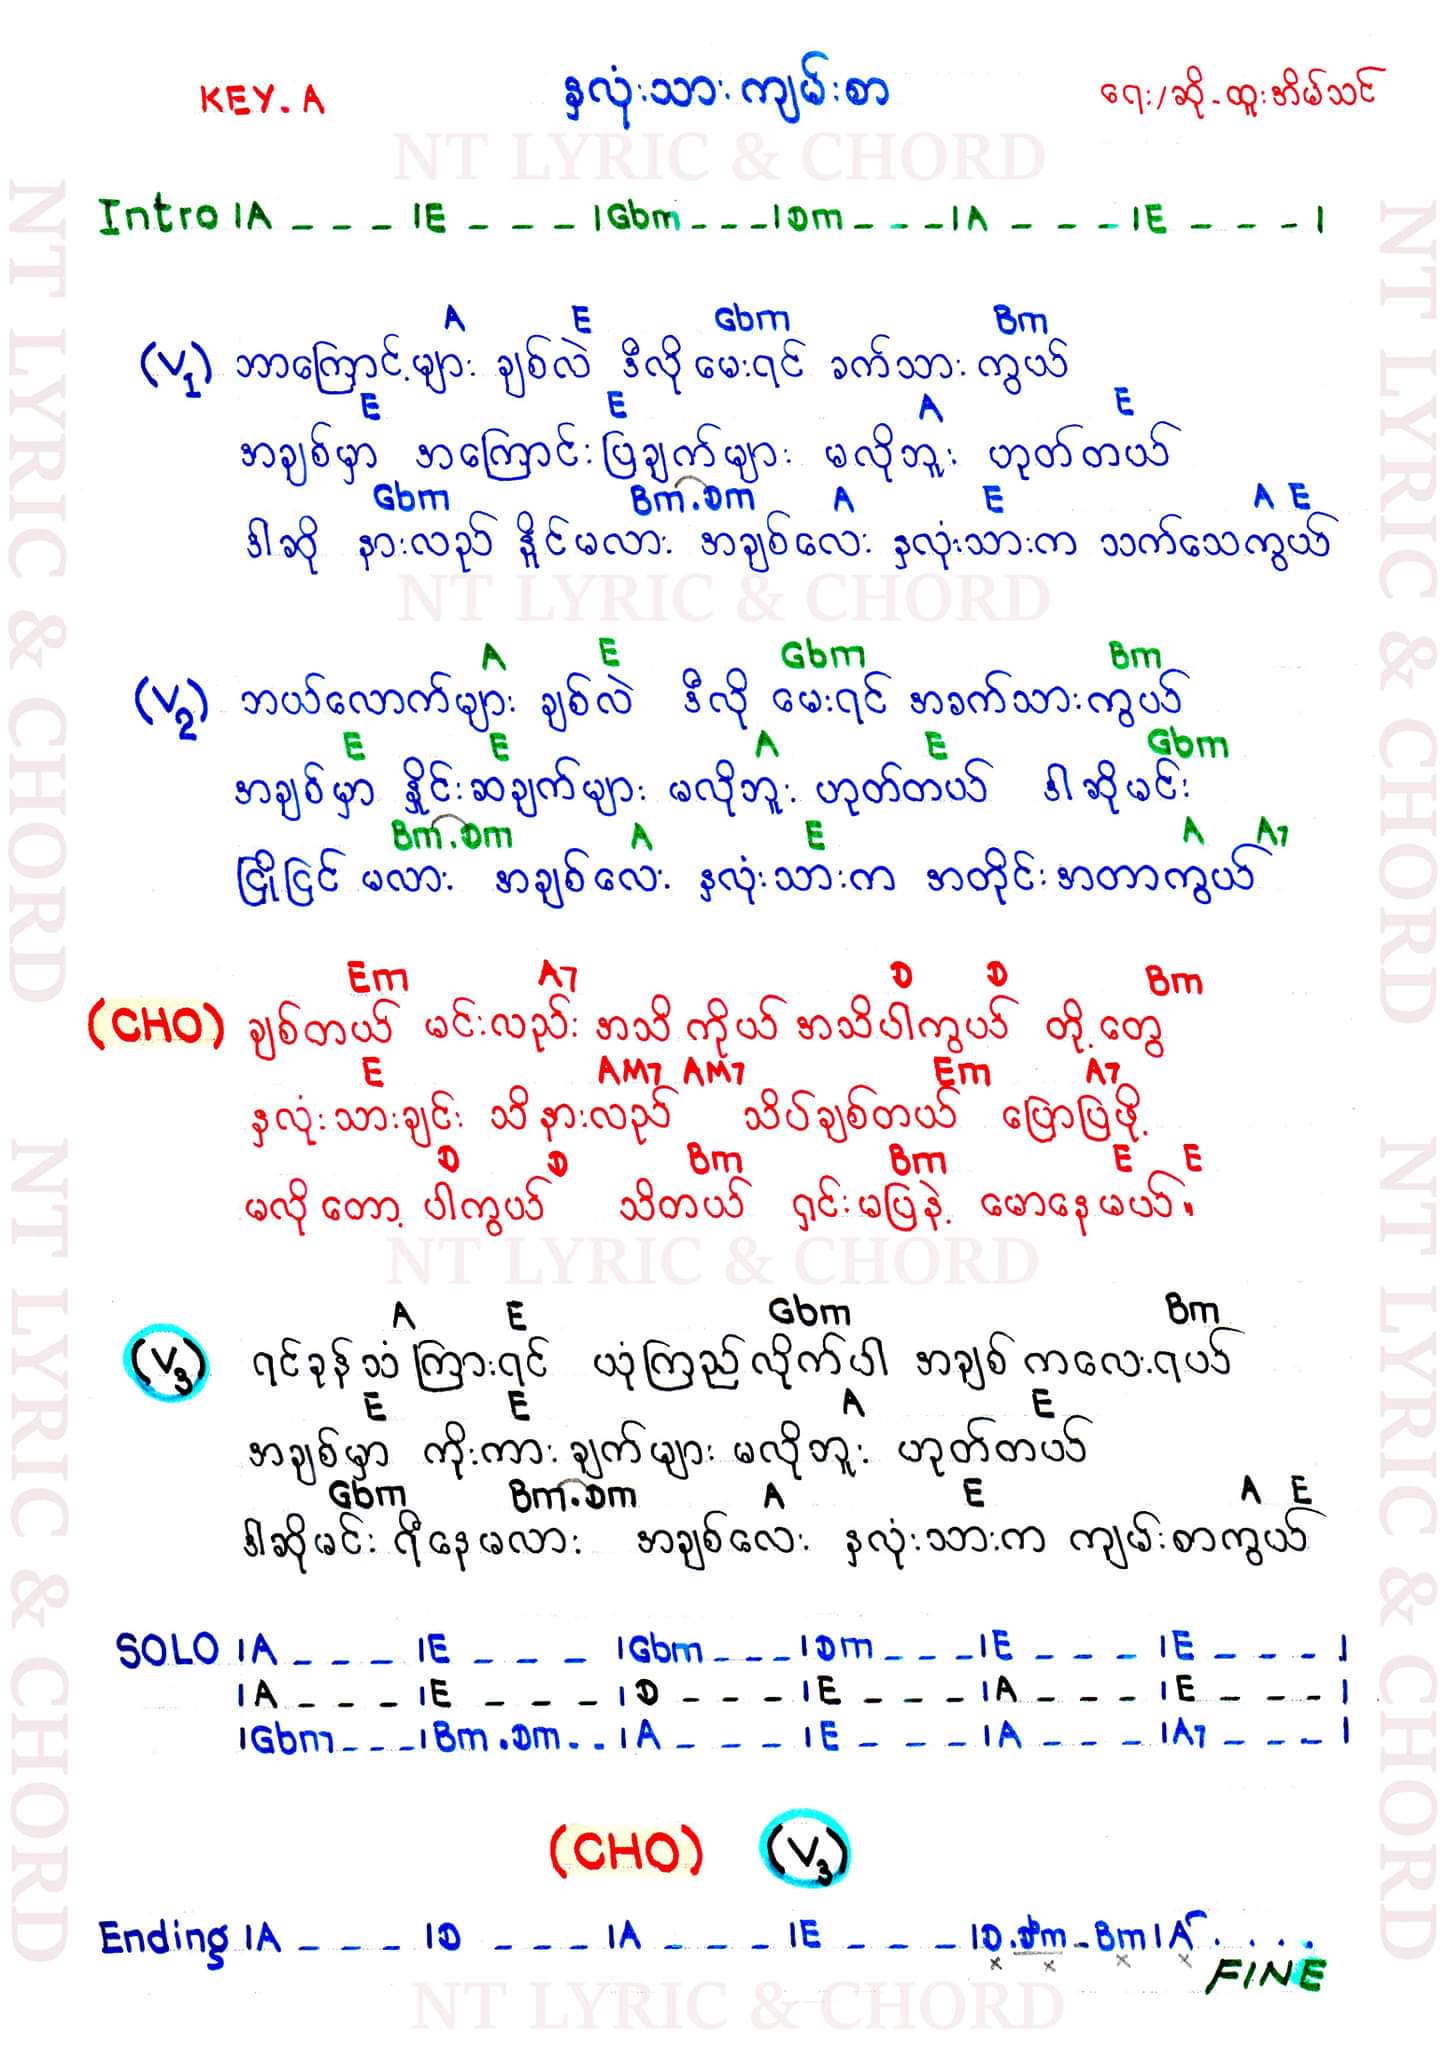 KEY. A နှလုံးသားကျမ်းစာ ရေး/ဆို - ထူးအိမ်သင်
NT LYRIC & CHORD
Intro |A _ _ _ |E _ _ _ |Gbm _ _ _ |Dm _ _ _ |A _ _ _ |E _ _ _ |
A E Gbm Bm
(V1) ဘာကြောင့်များ ချစ်လဲ ဒီလိုမေးရင် ခက်သားကွယ်
E E A E
အချစ်မှာ အကြောင်းပြချက်များ မလိုဘူး ဟုတ်တယ်
Gbm Bm.Dm A E A E
ဒါဆို နားလည်နိူင်မလား အချစ်လေး နှလုံးသားက သက်သေကွယ်
NT LYRIC & CHORD
A E Gbm Bm
(V2) ဘယ်လောက်များ ချစ်လဲ ဒီလိုမေးရင် အခက်သားကွယ်
E E A E Gbm
အချစ်မှာ နှိူင်းဆချက်များ မလိုဘူး ဟုတ်တယ် ဒါဆိုမင်း
Bm.Dm A E A A7
ငြိုငြင်မလား အချစ်လေး နှလုံးသားက အတိုင်းအတာကွယ်
Em A7 D D Bm
(CHO) ချစ်တယ် မင်းလည်းအသိ ကိုယ်အသိပါကွယ် တို့တွေ
E AM7 AM7 Em A7
နှလုံးသားချင်း သိနားလည် သိပ်ချစ်တယ် ပြောပြဖို့
D D Bm Bm E E
မလိုတော့ပါကွယ် သိတယ် ရှင်းမပြနဲ့ မောနေမယ်။
NT LYRIC & CHORD
A E Gbm Bm
(V3) ရင်ခုန်သံကြားရင် ယုံကြည်လိုက်ပါ အချစ်ကလေးရယ်
E E A E
အချစ်မှာ ကိုးကားချက်များ မလိုဘူး ဟုတ်တယ်
Gbm Bm.Dm A E A E
ဒါဆိုမင်း ရီနေမလား အချစ်လေး နှလုံးသားက ကျမ်းစာကွယ်
SOLO |A _ _ _ |E _ _ _ |Gbm _ _ _ |Dm _ _ _ |E _ _ _ |E _ _ _ |
|A _ _ _ |E _ _ _ |D _ _ _ |E _ _ _ |A _ _ _ |E _ _ _ |
|Gbm _ _ _ |Bm.Dm.. |A _ _ _ |E _ _ _ |A _ _ _ |A7 _ _ _ |
(CHO) (V3)
Ending |A _ _ _ |D _ _ _ |A _ _ _ |E _ _ _ |D.Dm-Bm|A . . . .
x x x x
FINE
NT LYRIC & CHORD
NT LYRIC & CHORD
NT LYRIC & CHORD
NT LYRIC & CHORD
NT LYRIC & CHORD